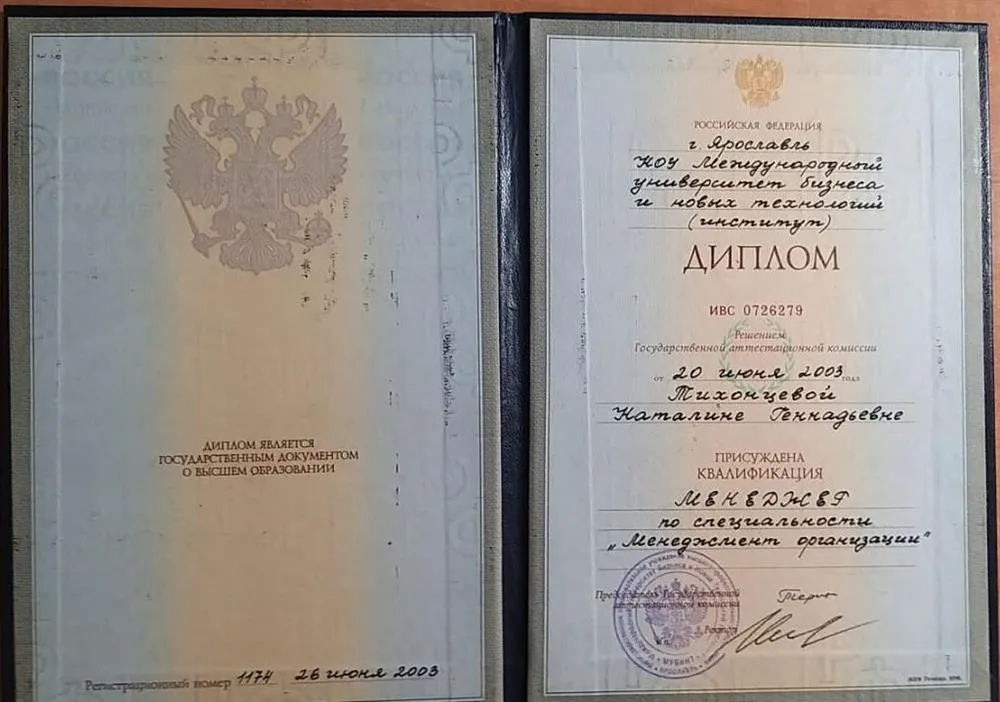 ДИПЛОМ ЯВЛЯЕТСЯ
ГОСУДАРСТВЕННЫМ ДОКУМЕНТОМ
О ВЫСШЕМ ОБРАЗОВАНИИ
Регистрационный номер 1174 26 июня 2003
РОССИЙСКАЯ ФЕДЕРАЦИЯ
г. Ярославль
НОУ Международный
университет бизнеса
и новых технологий
(институт)
ДИПЛОМ
ИВС 0726279
Решением
Государственной аттестационной комиссии
от 20 июня 2003 года
Тихонцевой
Наталине Геннадьевне
ПРИСУЖДЕНА
КВАЛИФИКАЦИЯ
МЕНЕДЖЕР
по специальности
„Менеджмент организации"
Председатель Государственной
аттестационной комиссии
Ректор
МУБИНТ